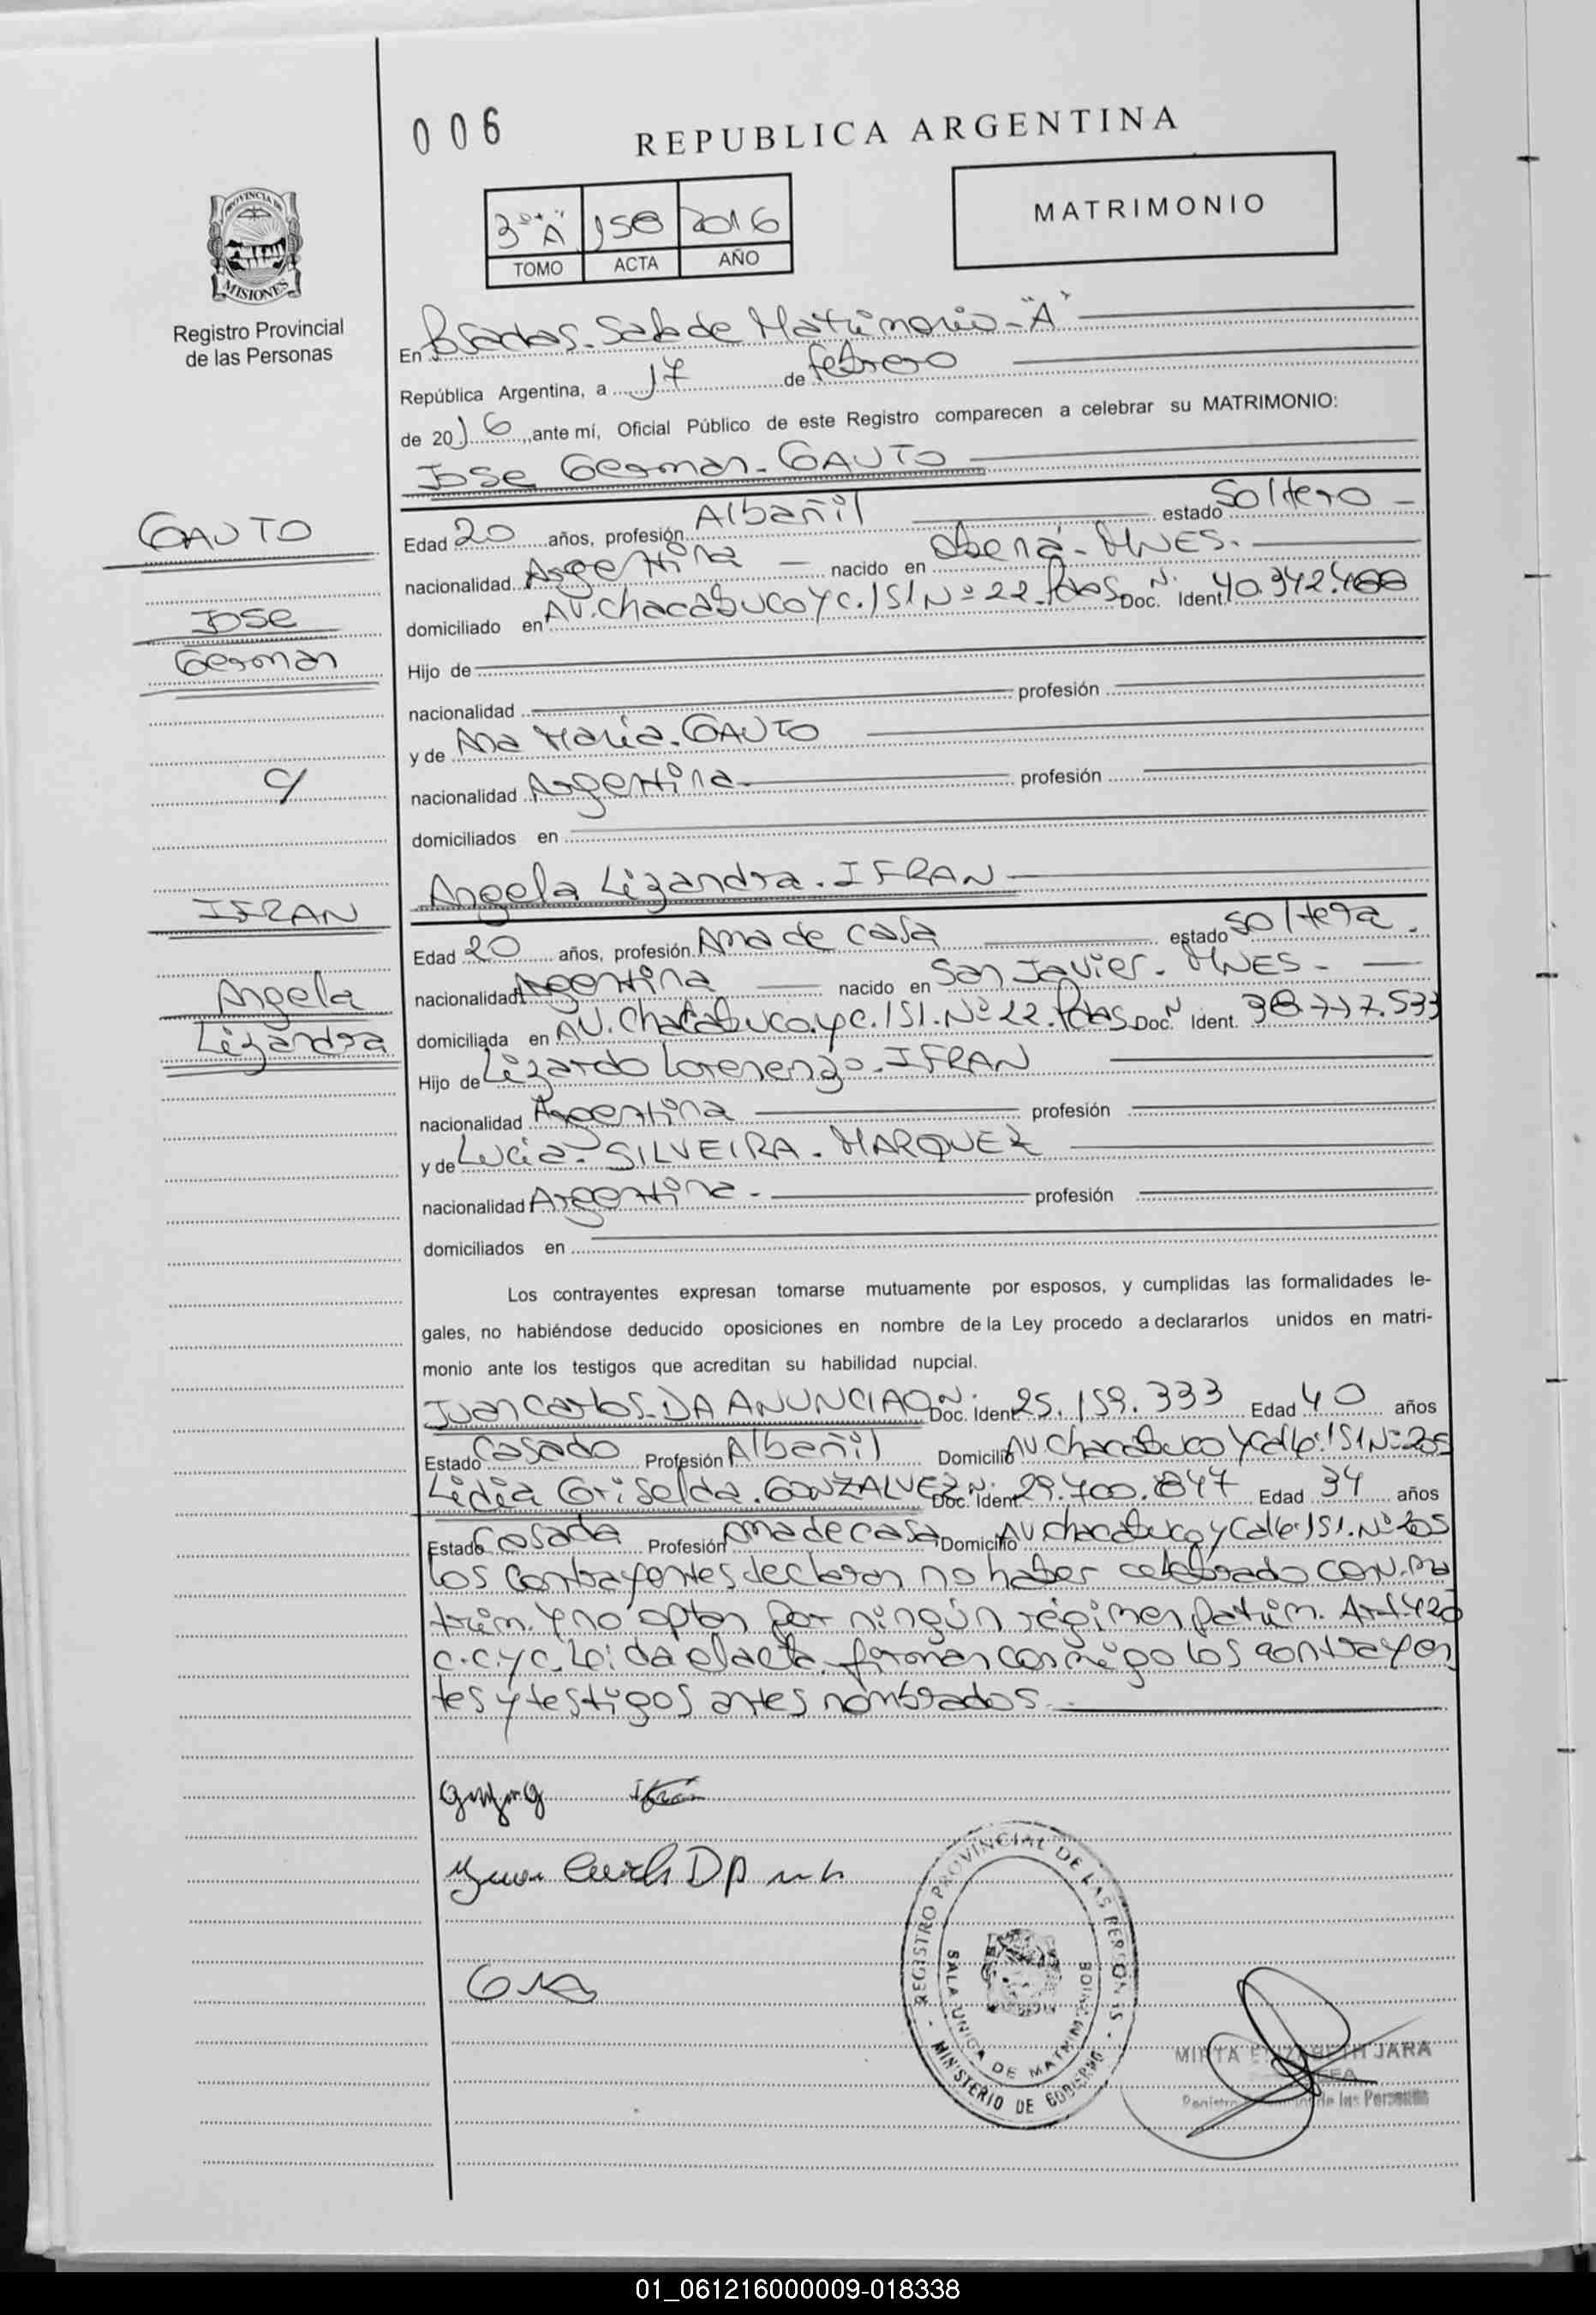 006
REPUBLICA ARGENTINA
PROVINCIA DE
MISIONES
Registro Provincial
de las Personas
3º "A" 158 2016
TOMO ACTA AÑO
MATRIMONIO
En Posadas. Sala de Matrimonio - "A"
República Argentina, a 17 de febrero
de 2016, ante mí, Oficial Público de este Registro comparecen a celebrar su MATRIMONIO:
Jose German - GAUTO
GAUTO
Jose
German
Edad 20 años, profesión Albañil estado Soltero -
nacionalidad Argentina - nacido en Oberá - MNES.
domiciliado en AV. Chacabuco y c. 151 Nº 22. Pdas. Doc. N. Ident. 40.342.
Hijo de
nacionalidad profesión
y de Ana Maria. GAUTO
c/
nacionalidad Argentina profesión
domiciliados en
Angela Lizandra. IFRAN
IFRAN
Angela
Lizandra
Edad 20 años, profesión Ama de casa estado soltera.
nacionalidad Argentina nacido en San Javier. MNES -
domiciliada en AV. Chacabuco y c. 151. Nº 22. Pdas. Doc. N. Ident. 38.717.533
Hijo de Lizardo Lorenenzo - IFRAN
nacionalidad Argentina profesión
y de Lucia. SILVEIRA. MARQUEZ
nacionalidad Argentina - profesión
domiciliados en
Los contrayentes expresan tomarse mutuamente por esposos, y cumplidas las formalidades le-
gales, no habiéndose deducido oposiciones en nombre de la Ley procedo a declararlos unidos en matri-
monio ante los testigos que acreditan su habilidad nupcial.
Juan Carlos. DA ANUNCIAO Doc. N. Ident. 25.159.333 Edad 40 años
Estado Casado Profesión Albañil Domicilio AV. Chacabuco y Calle. 151 Nº 205
Lidia Griselda. GONZALVEZ Doc. N. Ident. 29.700.847 Edad 34 años
Estado Casada Profesión Ama de casa Domicilio AV. Chacabuco y Calle. 151. Nº 205
Los contrayentes declaran no haber celebrado CON. Ma
trim. y no optan por ningún régimen patrim. Art. 420
C.C.yC. Leida el acta. firman conmigo los contrayen
tes y testigos antes nombrados.
REGISTRO PROVINCIAL DE LAS PERSONAS
SALA UNICA DE MATRIMONIOS
MINISTERIO DE GOBIERNO
MIRTA ELIZABETH JARA
Registro de las Personas
01_061216000009-018338